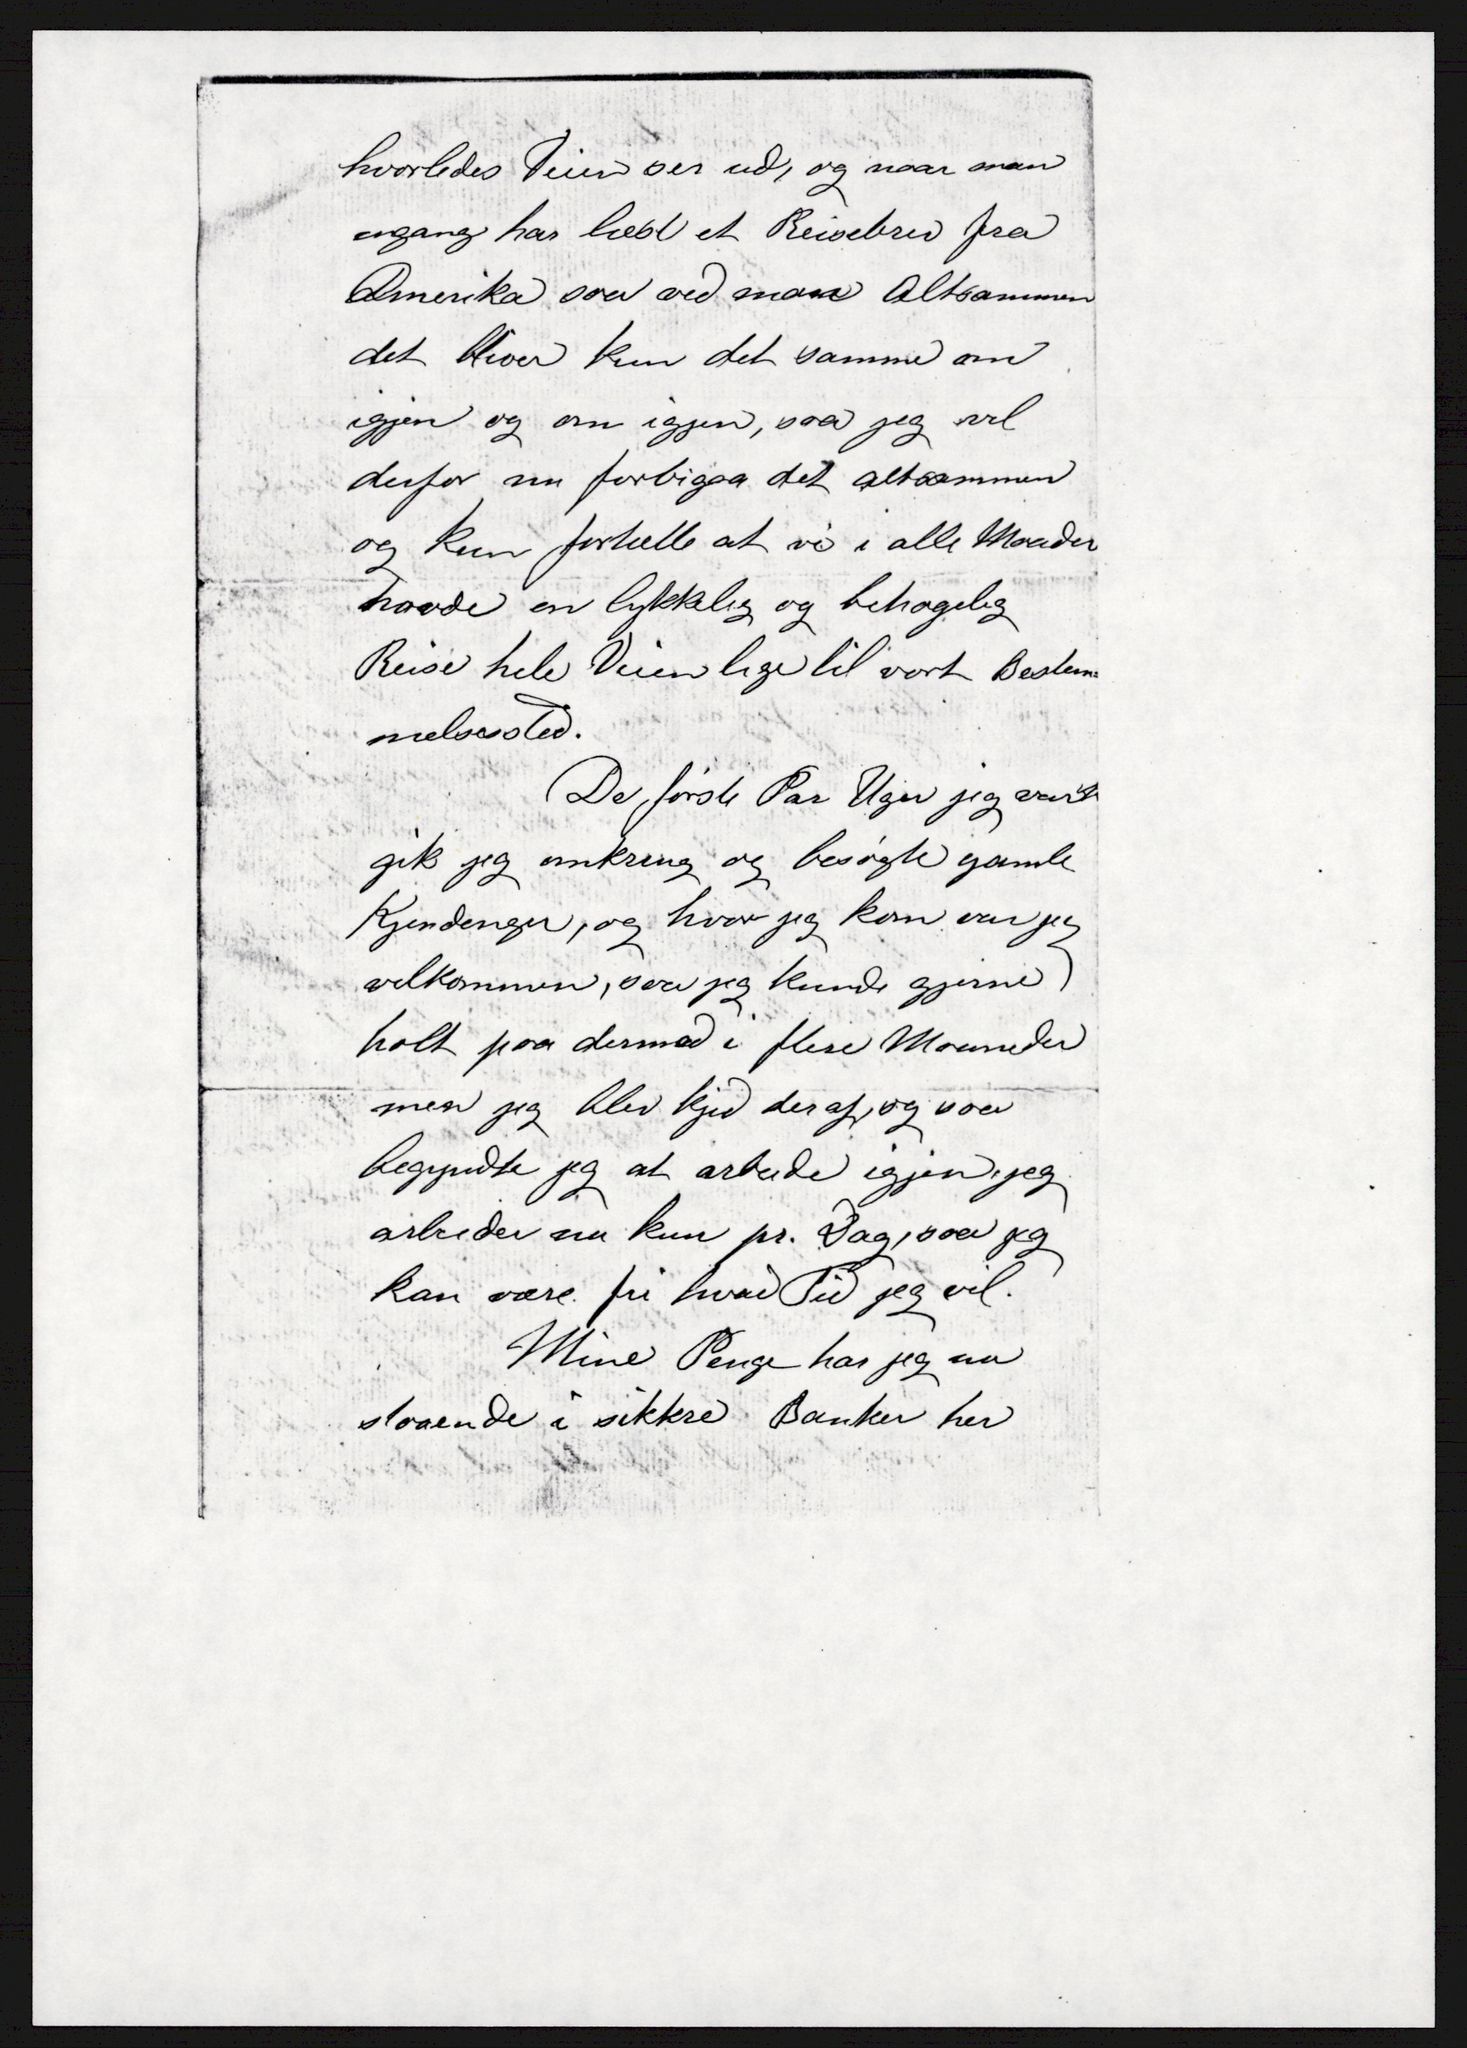 hvorledes Veien ser ud, og naar man
engang har læst et Reisebrev fra
Amerika saa ved man Altsammen
det bliver kun det samme om
igjen og om igjen, saa jeg vil
derfor nu forbigaa det altsammen
og kun fortælle at vi i alle Maader
havde en lykkelig og behagelig
Reise hele Veien lige til vort Bestem=
melsessted.
De første Par Uger jeg var
gik jeg omkring og besøgte gamle
Kjendinger, og hvor jeg kom var jeg
velkommen, saa jeg kunde gjerne
holt paa dermed i flere Maaneder
men jeg blev kjed deraf, og saa
begyndte jeg at arbeide igjen, jeg
arbeider nu kun pr. Dag, saa jeg
kan være fri hvad Tid jeg vil.
Mine Penge har jeg nu
staaende i sikkre Banker her